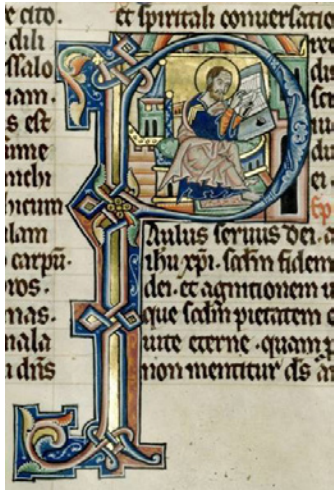 e cito.
dili
ssalo
iam.
s est
ume
michi
hicum
lam
carpū.
ros.
mas.
mala
dñs
et spiritali conversatio
P
Aulus servus dei. a
ihu xpi. scdm fidem
dei. et agnitionem
que scdm pietatem e
vite eterne. quam
non mentitur ds